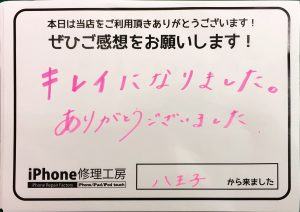 本日は当店をご利用頂きありがとうございます！
ぜひご感想をお願いします！
キレイになりました。
ありがとうございました
iPhone修理工房
iPhone Repair Factory iPhone/iPad/iPod touch
八王子 から来ました